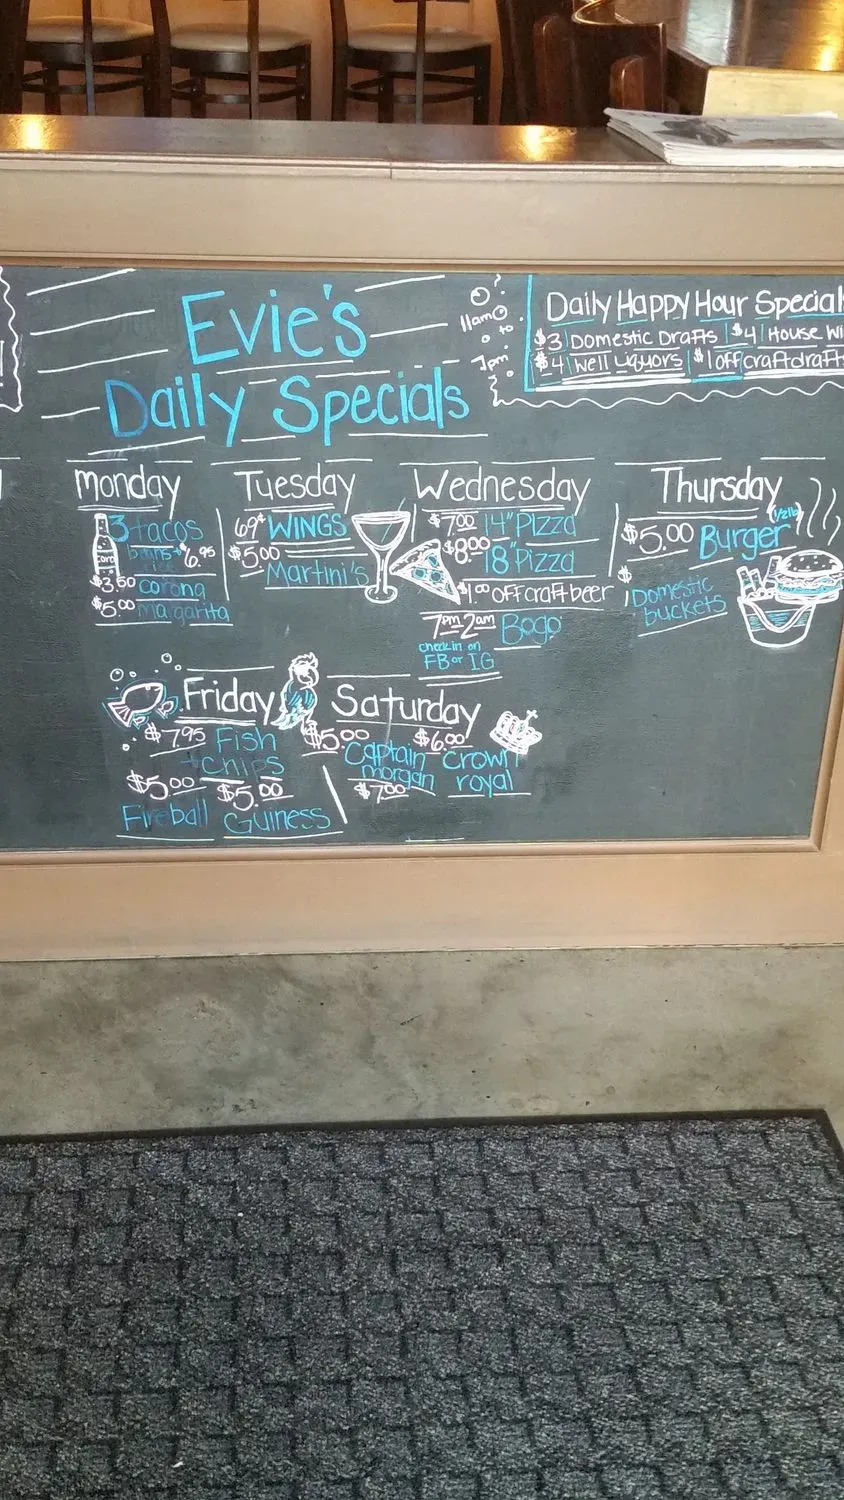 Evie's
Daily Specials
11am to 7pm
Daily Happy Hour Special
$3 Domestic Drafts $4 House Wi
$4 Well Liquors $1 off craft drafts
Monday
3 tacos
$6.95
$3.50 Corona
$5.00 Margarita
Tuesday
69¢ WINGS
$5.00
Martini's
Wednesday
$7.00 14" Pizza
$8.00 18" Pizza
$1.00 off craft beer
7pm-2am Bogo
check in on
FB or IG
Thursday
(1/2lb)
$5.00 Burger
$
Domestic
buckets
Friday
$7.95 Fish
+ chips
$5.00 $5.00
Fireball Guiness
Saturday
$5.00 $6.00
Captain Crown
morgan royal
$7.00